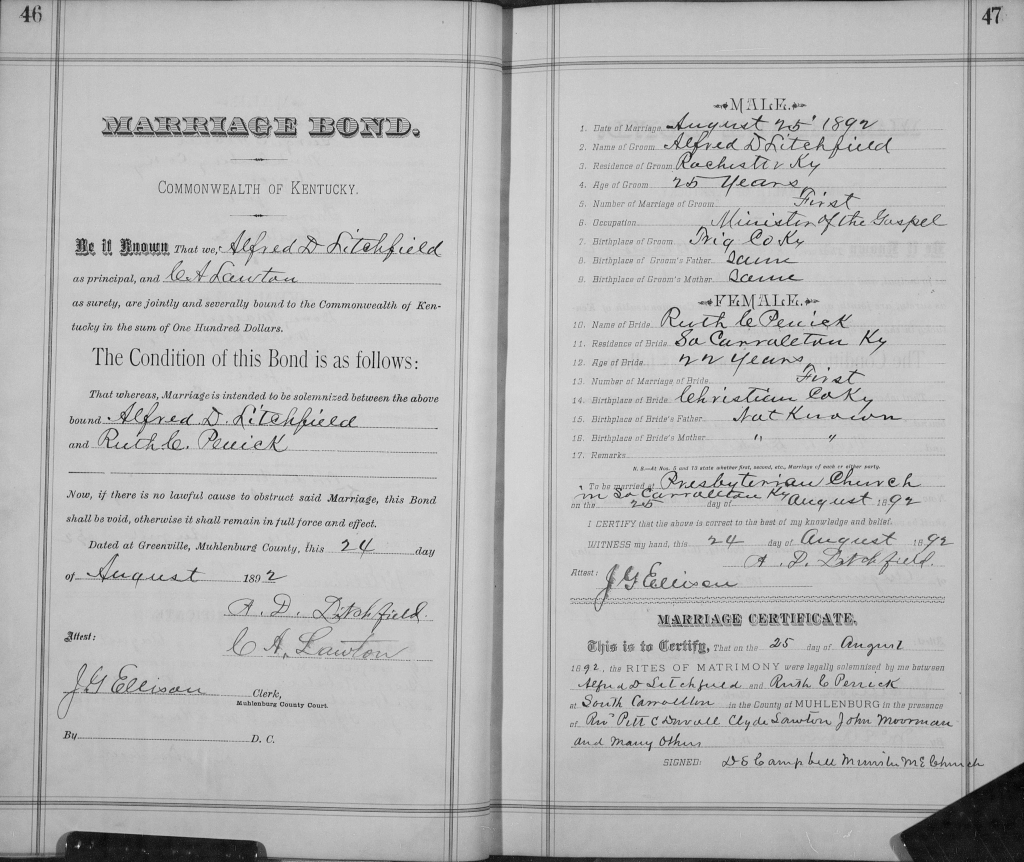 46
MARRIAGE BOND.
COMMONWEALTH OF KENTUCKY.
Be it Known That we, Alfred D Litchfield
as principal, and C A Lawton
as surety, are jointly and severally bound to the Commonwealth of Ken-
tucky in the sum of One Hundred Dollars.
The Condition of this Bond is as follows:
That whereas, Marriage is intended to be solemnized between the above
bound Alfred D. Litchfield
and Ruth C. Penick
Now, if there is no lawful cause to obstruct said Marriage, this Bond
shall be void, otherwise it shall remain in full force and effect.
Dated at Greenville, Muhlenburg County, this 24 day
of August 1892
A. D. Litchfield.
Attest: C A. Lawton
J G Ellison Clerk,
Muhlenburg County Court.
By D. C.
47
MALE.
1. Date of Marriage August 25' 1892
2. Name of Groom Alfred D Litchfield
3. Residence of Groom Rochester Ky
4. Age of Groom 25 Years
5. Number of Marriage of Groom First
6. Occupation Minister of the Gospel
7. Birthplace of Groom Trig Co Ky
8. Birthplace of Groom's Father Same
9. Birthplace of Groom's Mother Same
FEMALE.
10. Name of Bride Ruth C Penick
11. Residence of Bride So Carrolleton Ky
12. Age of Bride 22 Years
13. Number of Marriage of Bride First
14. Birthplace of Bride Christian Co Ky
15. Birthplace of Bride's Father Not Known
16. Birthplace of Bride's Mother " "
17. Remarks
N. B.—At Nos. 5 and 13 state whether first, second, etc., Marriage of each or either party.
To be married at Presbyterian Church
in So Carrolleton Ky
on the 25 day of August 1892
I CERTIFY that the above is correct to the best of my knowledge and belief.
WITNESS my hand, this 24 day of August 1892
A. D. Litchfield.
Attest: J G Ellison
MARRIAGE CERTIFICATE.
This is to Certify, That on the 25 day of August
1892, the RITES OF MATRIMONY were legally solemnized by me between
Alfred D Litchfield and Ruth C Penick
at South Carrollton in the County of MUHLENBURG in the presence
of Rev Pitt C Duvall Clyde Lawton John Moorman
and many Others
SIGNED: D S Campbell Minister M E Church